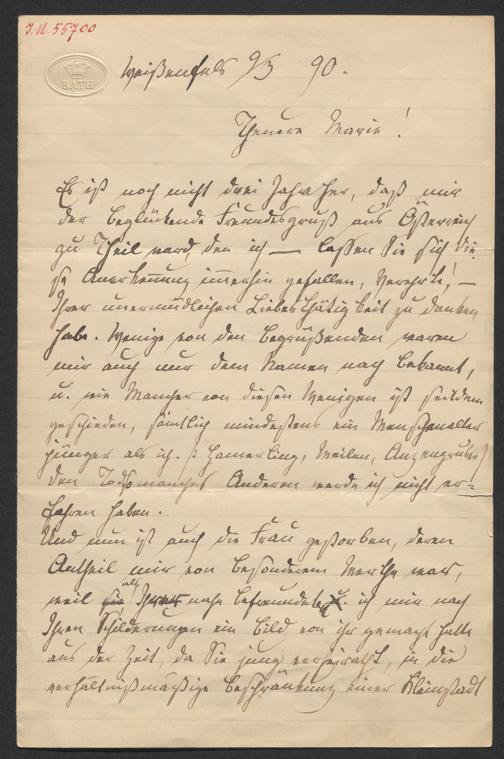 J.N. 55700
BATH
Weißenfels 9/3 90.
Theuere Marie!
Es ist noch nicht drei Jahre her, daß mir
der beglückende Freundesgruß aus Österreich
zu Theil ward, den ich — lassen Sie sich die-
se Anerkennung immerhin gefallen, Verehrte! —
Ihrer unermüdlichen Liebesthätigkeit zu danken
habe. Wenige von den Begrüßenden waren
mir auch nur dem Namen nach bekannt,
u. wie Mancher von diesen Wenigen ist seitdem
geschieden, sämtlich mindestens ein Menschenalter
jünger als ich. /: Hamerling, Weilen, Anzengruber/
Den Tod manches Anderen werde ich nicht er-
fahren haben.
Und nun ist auch die Frau gestorben, deren
Antheil mir von besonderem Werthe war,
weil sie als Ihnen nahe befreundete u. ich mir nach
Ihren Schilderungen ein Bild von ihr gemacht hatte
aus der Zeit, da Sie jung verheirathet, in die
verhältnißmäßige Beschränkung einer Kleinstadt